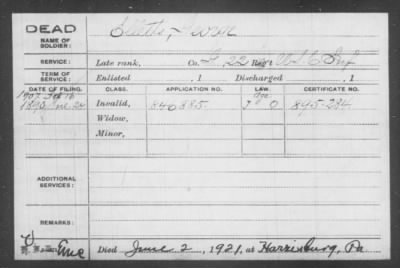 DEAD
NAME OF SOLDIER:
SERVICE: Late rank, Co. F, 22 Reg't U.S.C. Inf
TERM OF SERVICE: Enlisted , 1 Discharged , 1
DATE OF FILING. CLASS. APPLICATION NO. LAW. CERTIFICATE NO.
1907 Feb 16 Age
1890 Invalid, 846885. J O 845-284
Widow,
Minor,
ADDITIONAL SERVICES:
REMARKS:
Died June 2, 1921, at Harrisburg, Pa